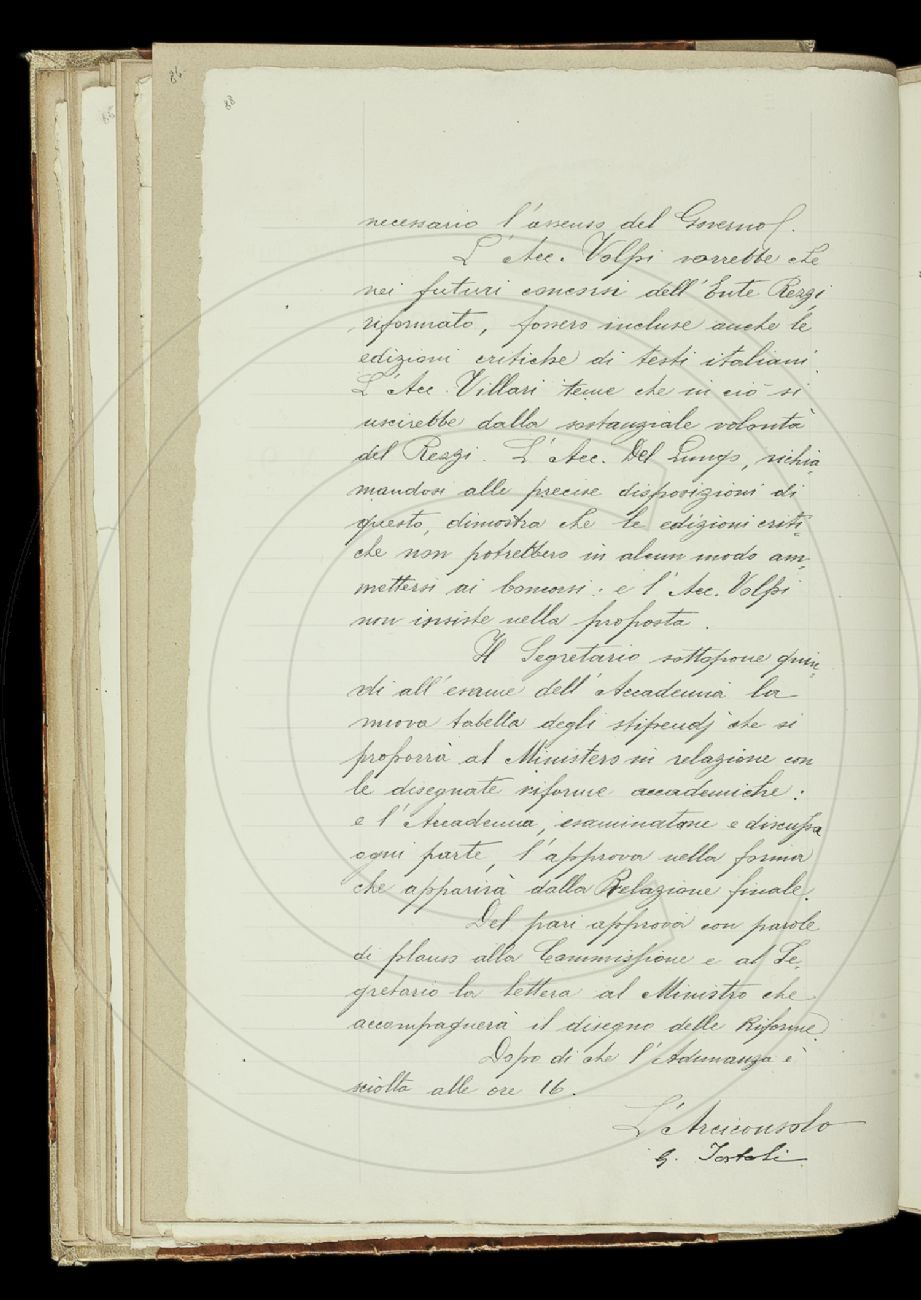 88
necessario l'assenso del Governo).
L'Acc. Volpi vorrebbe che
nei futuri concorsi dell'Ente Rezzi
riformato, fossero incluse anche le
edizioni critiche di testi italiani.
L'Acc. Villari teme che in ciò si
uscirebbe dalla sostanziale volontà
del Rezzi. L'Acc. Del Lungo, richia-
mandosi alle precise disposizioni di
questo, dimostra che le edizioni criti-
che non potrebbero in alcun modo am-
mettersi ai Concorsi: e l'Acc. Volpi
non insiste nella proposta.
Il Segretario sottopone quin-
di all'esame dell'Accademia la
nuova tabella degli stipendj che si
proporrà al Ministero in relazione con
le disegnate riforme accademiche:
e l'Accademia, esaminatone e discussa
ogni parte, l'approva nella forma
che apparirà dalla Relazione finale.
Del pari approva con parole
di plauso alla Commissione e al Se-
gretario la lettera al Ministro che
accompagnerà il disegno delle Riforme.
Dopo di che l'Adunanza è
sciolta alle ore 16.
L'Arciconsolo
G. Tortoli